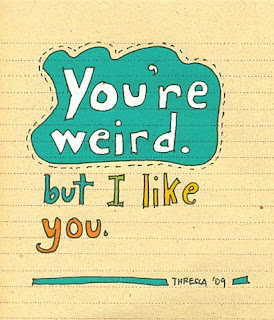 You're
weird.
but I like
you.
THRECCA '09